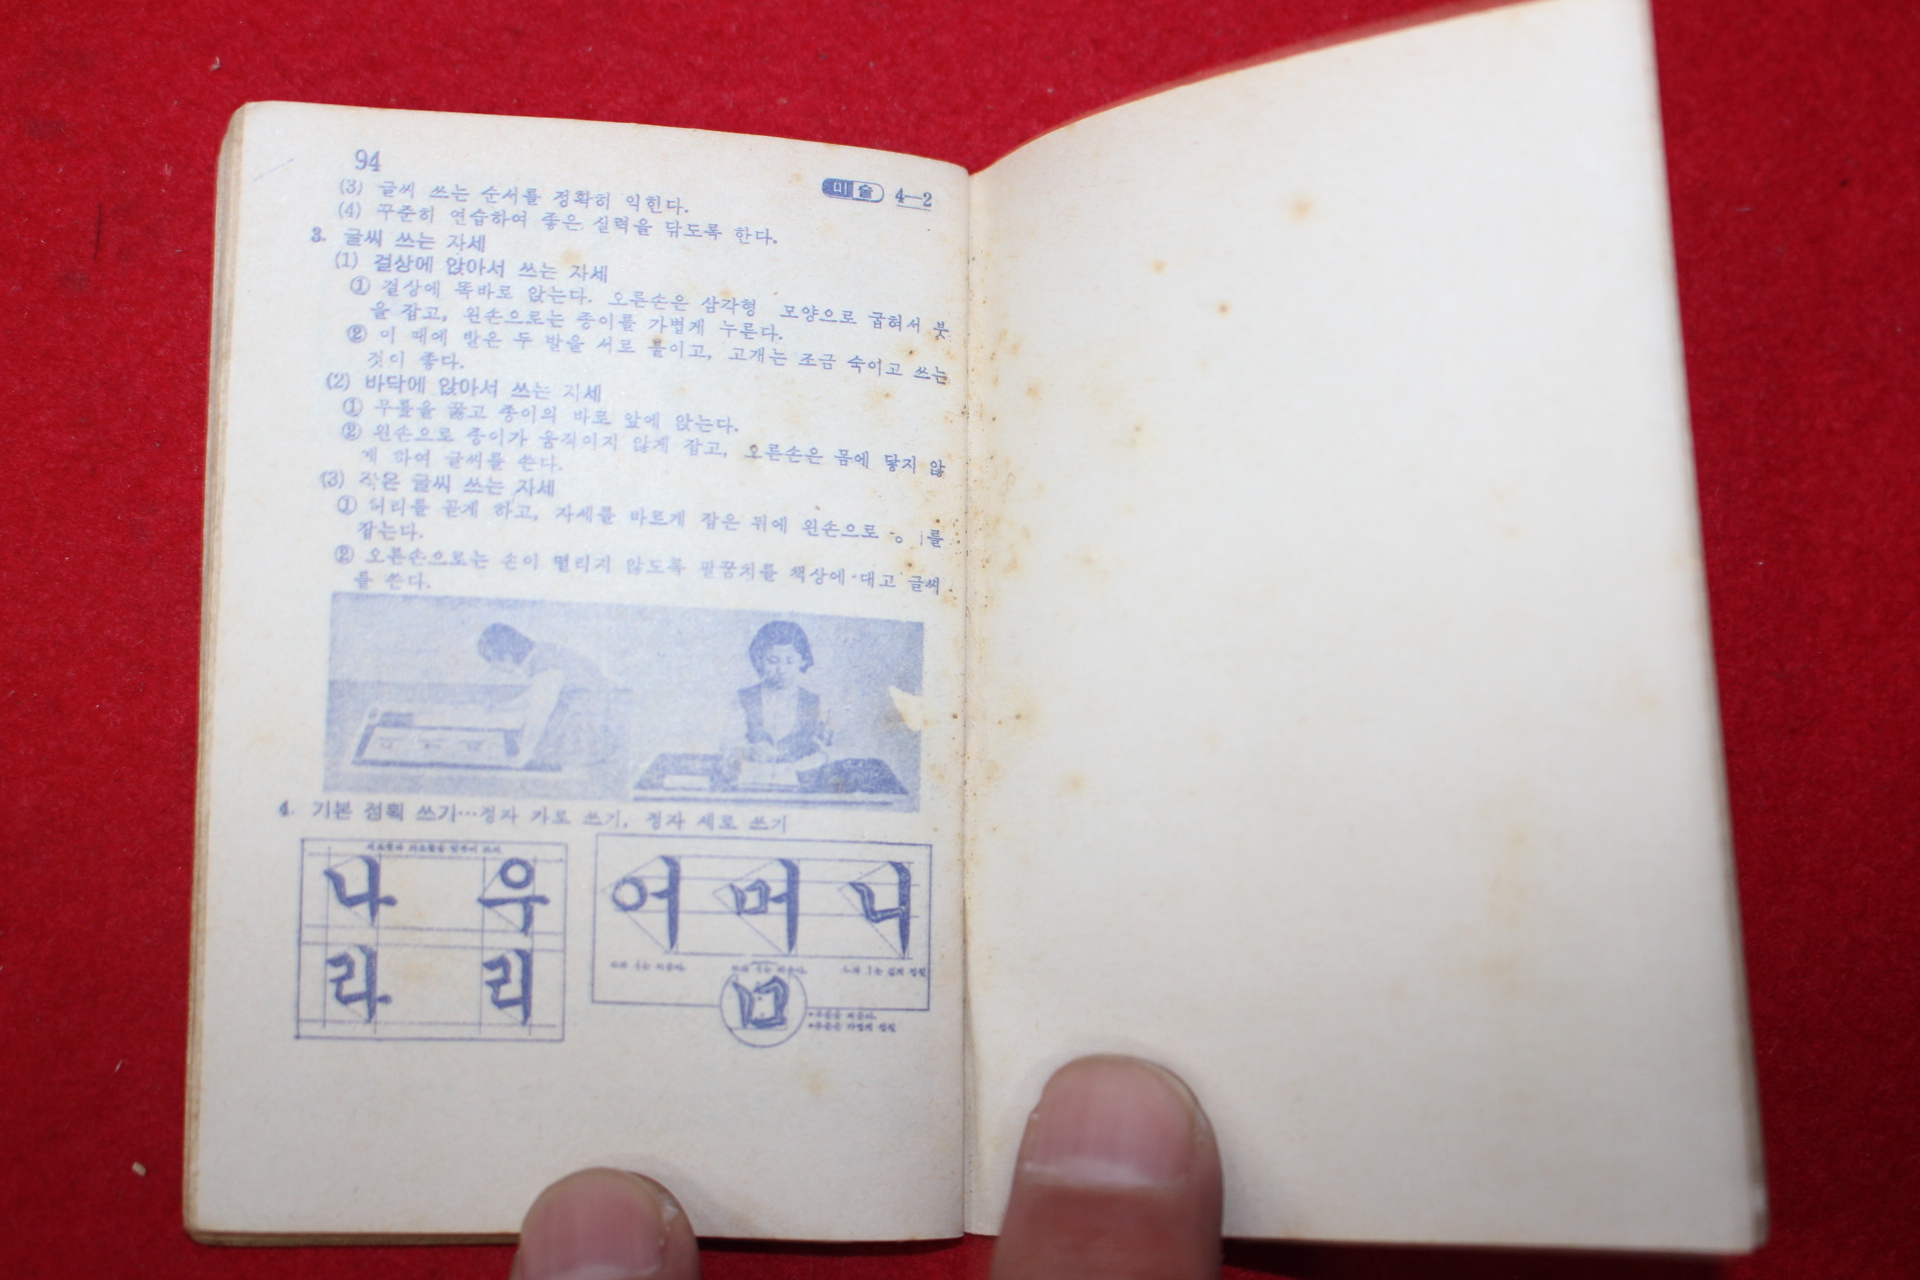 94
미술 4—2
(3) 글씨 쓰는 순서를 정확히 익힌다.
(4) 꾸준히 연습하여 좋은 실력을 닦도록 한다.
3. 글씨 쓰는 자세
(1) 걸상에 앉아서 쓰는 자세
① 걸상에 똑바로 앉는다. 오른손은 삼각형 모양으로 굽혀서 붓
을 잡고, 왼손으로는 종이를 가볍게 누른다.
② 이 때에 발은 두 발을 서로 붙이고, 고개는 조금 숙이고 쓰는
것이 좋다.
(2) 바닥에 앉아서 쓰는 자세
① 무릎을 꿇고 종이의 바로 앞에 앉는다.
② 왼손으로 종이가 움직이지 않게 잡고, 오른손은 몸에 닿지 않
게 하여 글씨를 쓴다.
(3) 작은 글씨 쓰는 자세
① 허리를 곧게 하고, 자세를 바르게 잡은 뒤에 왼손으로 를
잡는다.
② 오른손으로는 손이 떨리지 않도록 팔꿈치를 책상에 대고 글씨
를 쓴다.
4. 기본 점획 쓰기…정자 가로 쓰기, 정자 세로 쓰기
나 우
라 리
어 머 니
ㅁ